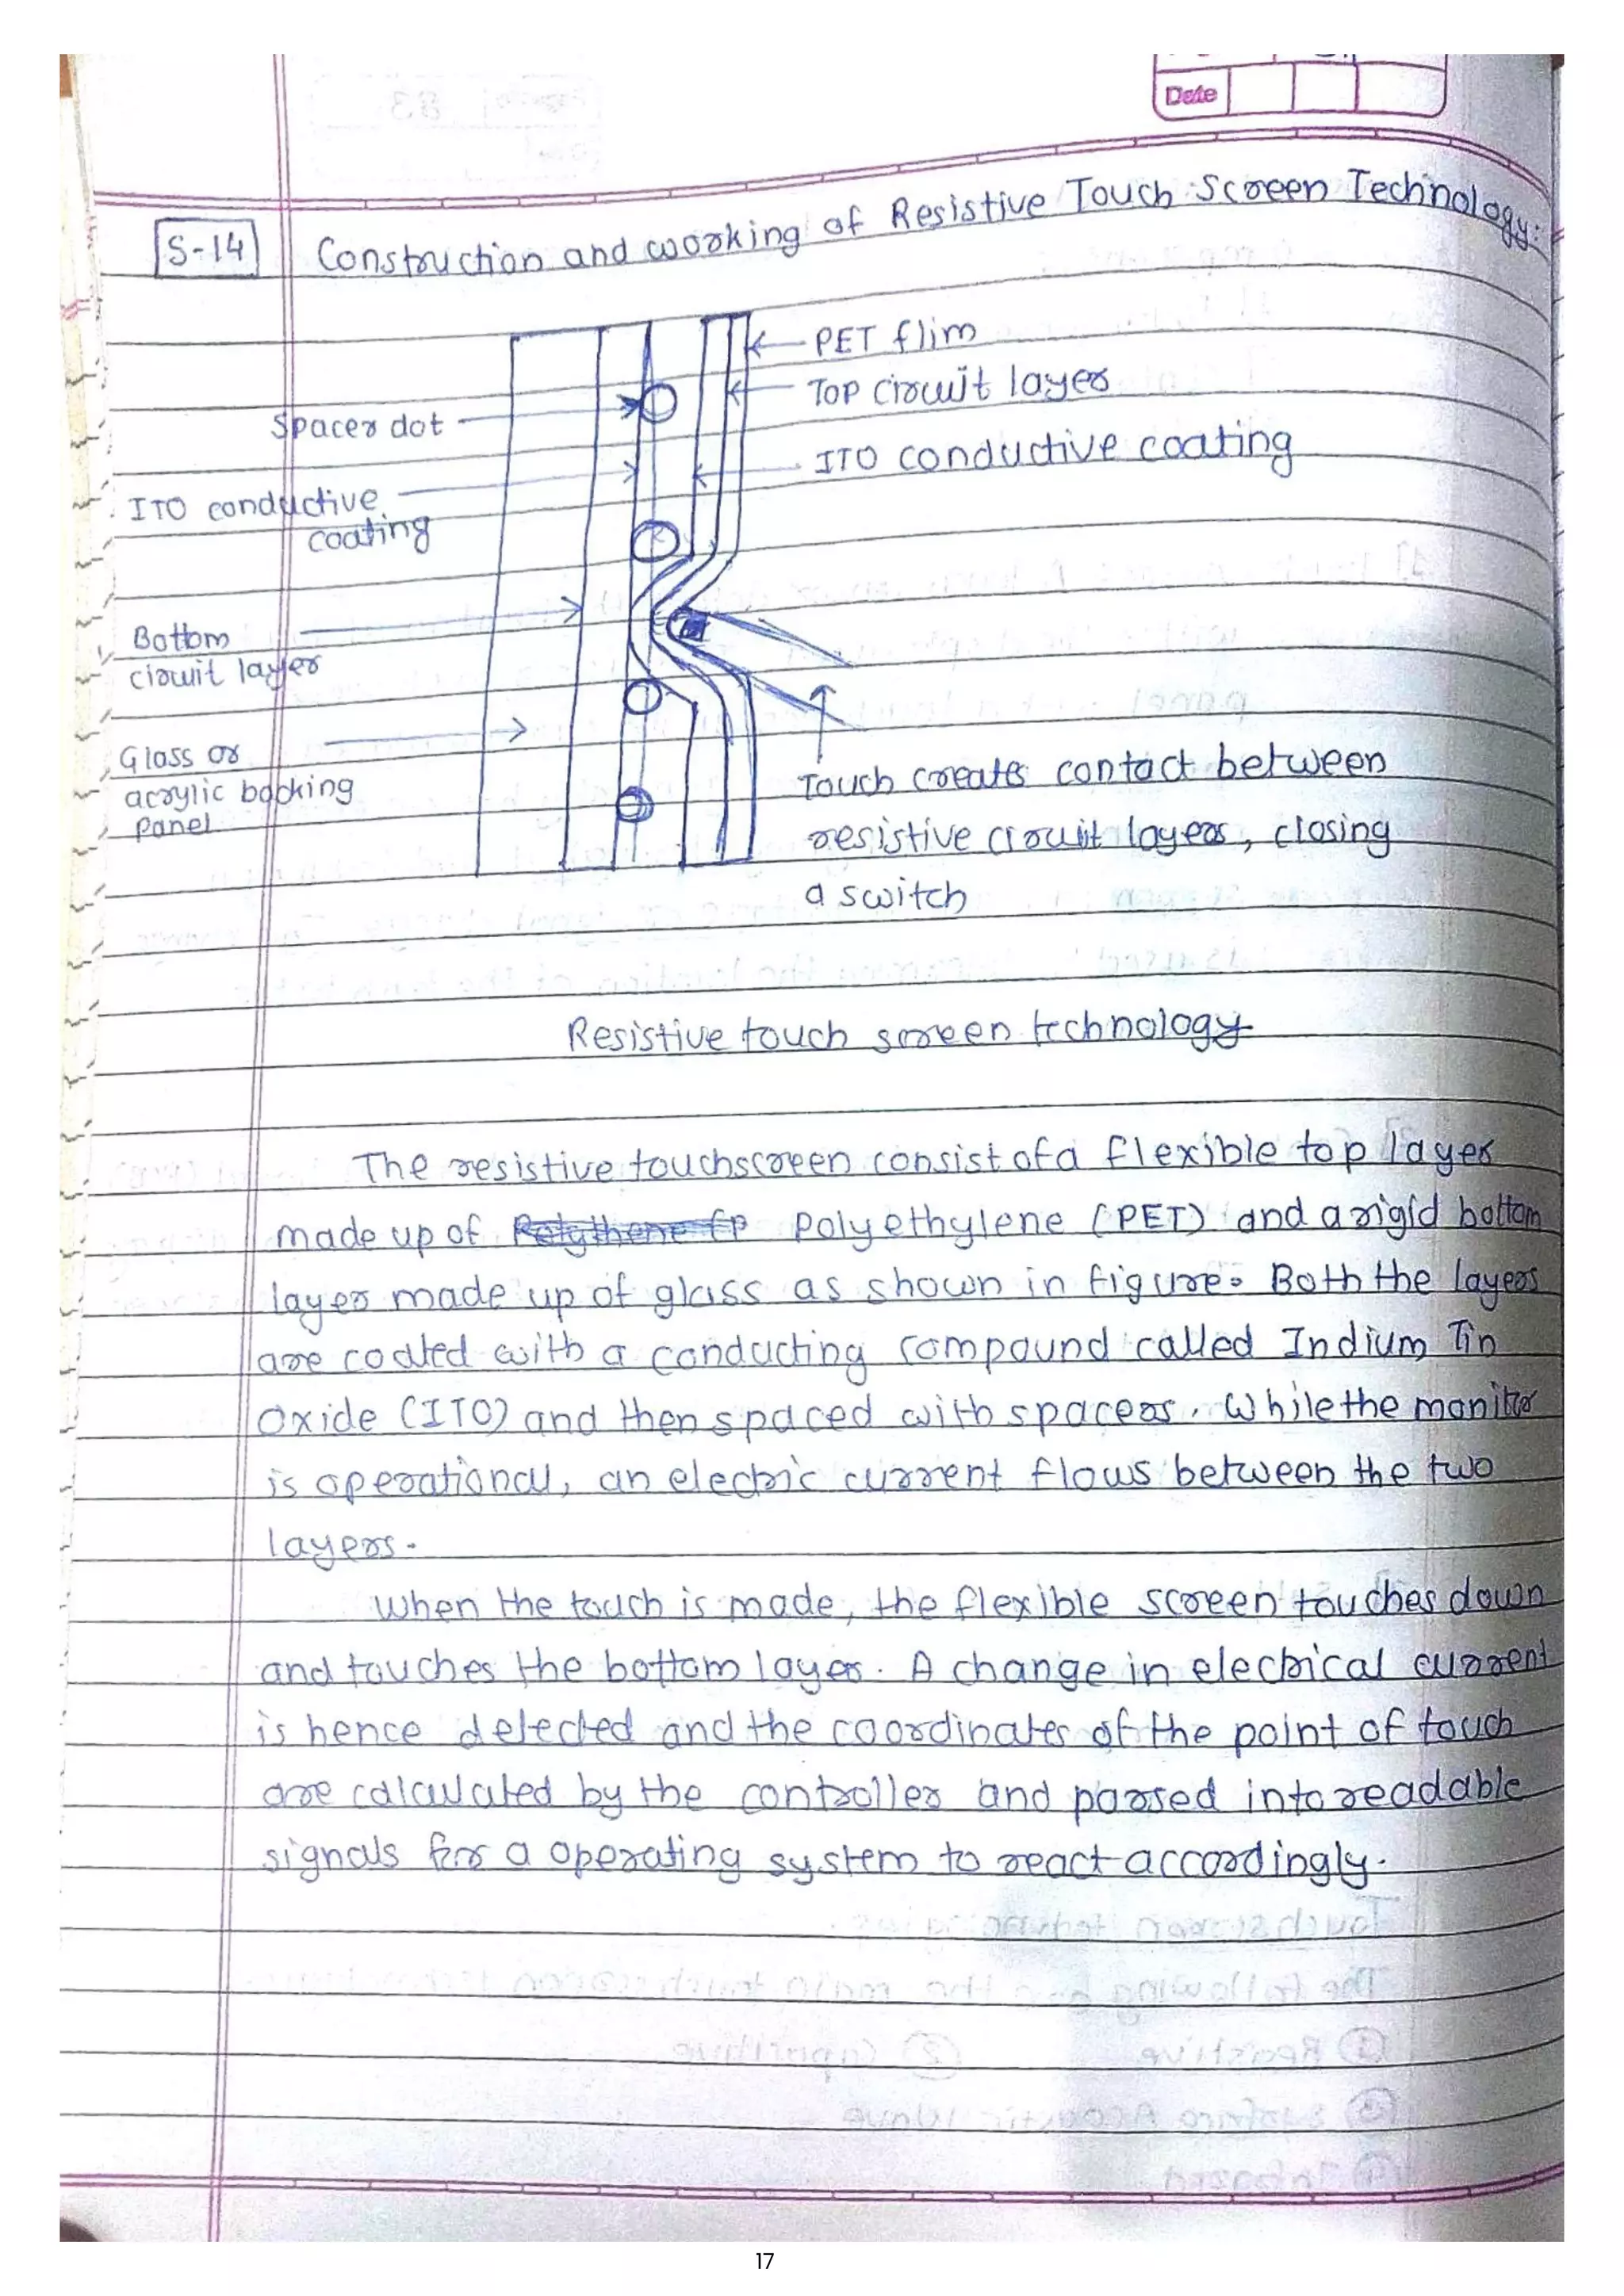 Date
S-14 Construction and working of Resistive Touch Screen Technology:
PET flim
Top circuit layer
Spacer dot
ITO conductive coating
ITO conductive
coating
Bottom
circuit layer
Glass or
acrylic backing
panel
Touch creates contact between
resistive circuit layers, closing
a switch
Resistive touch screen technology
The resistive touchscreen consist of a flexible top layer
made up of Polyethylene (PET) and a rigid bottom
layer made up of glass as shown in figure. Both the layers
are coated with a conducting compound called Indium Tin
Oxide (ITO) and then spaced with spacers. While the monitor
is operational, an electric current flows between the two
layers.
When the touch is made, the flexible screen touches down
and touches the bottom layer. A change in electrical current
is hence detected and the coordinates of the point of touch
are calculated by the controller and parsed into readable
signals for a operating system to react accordingly.
17